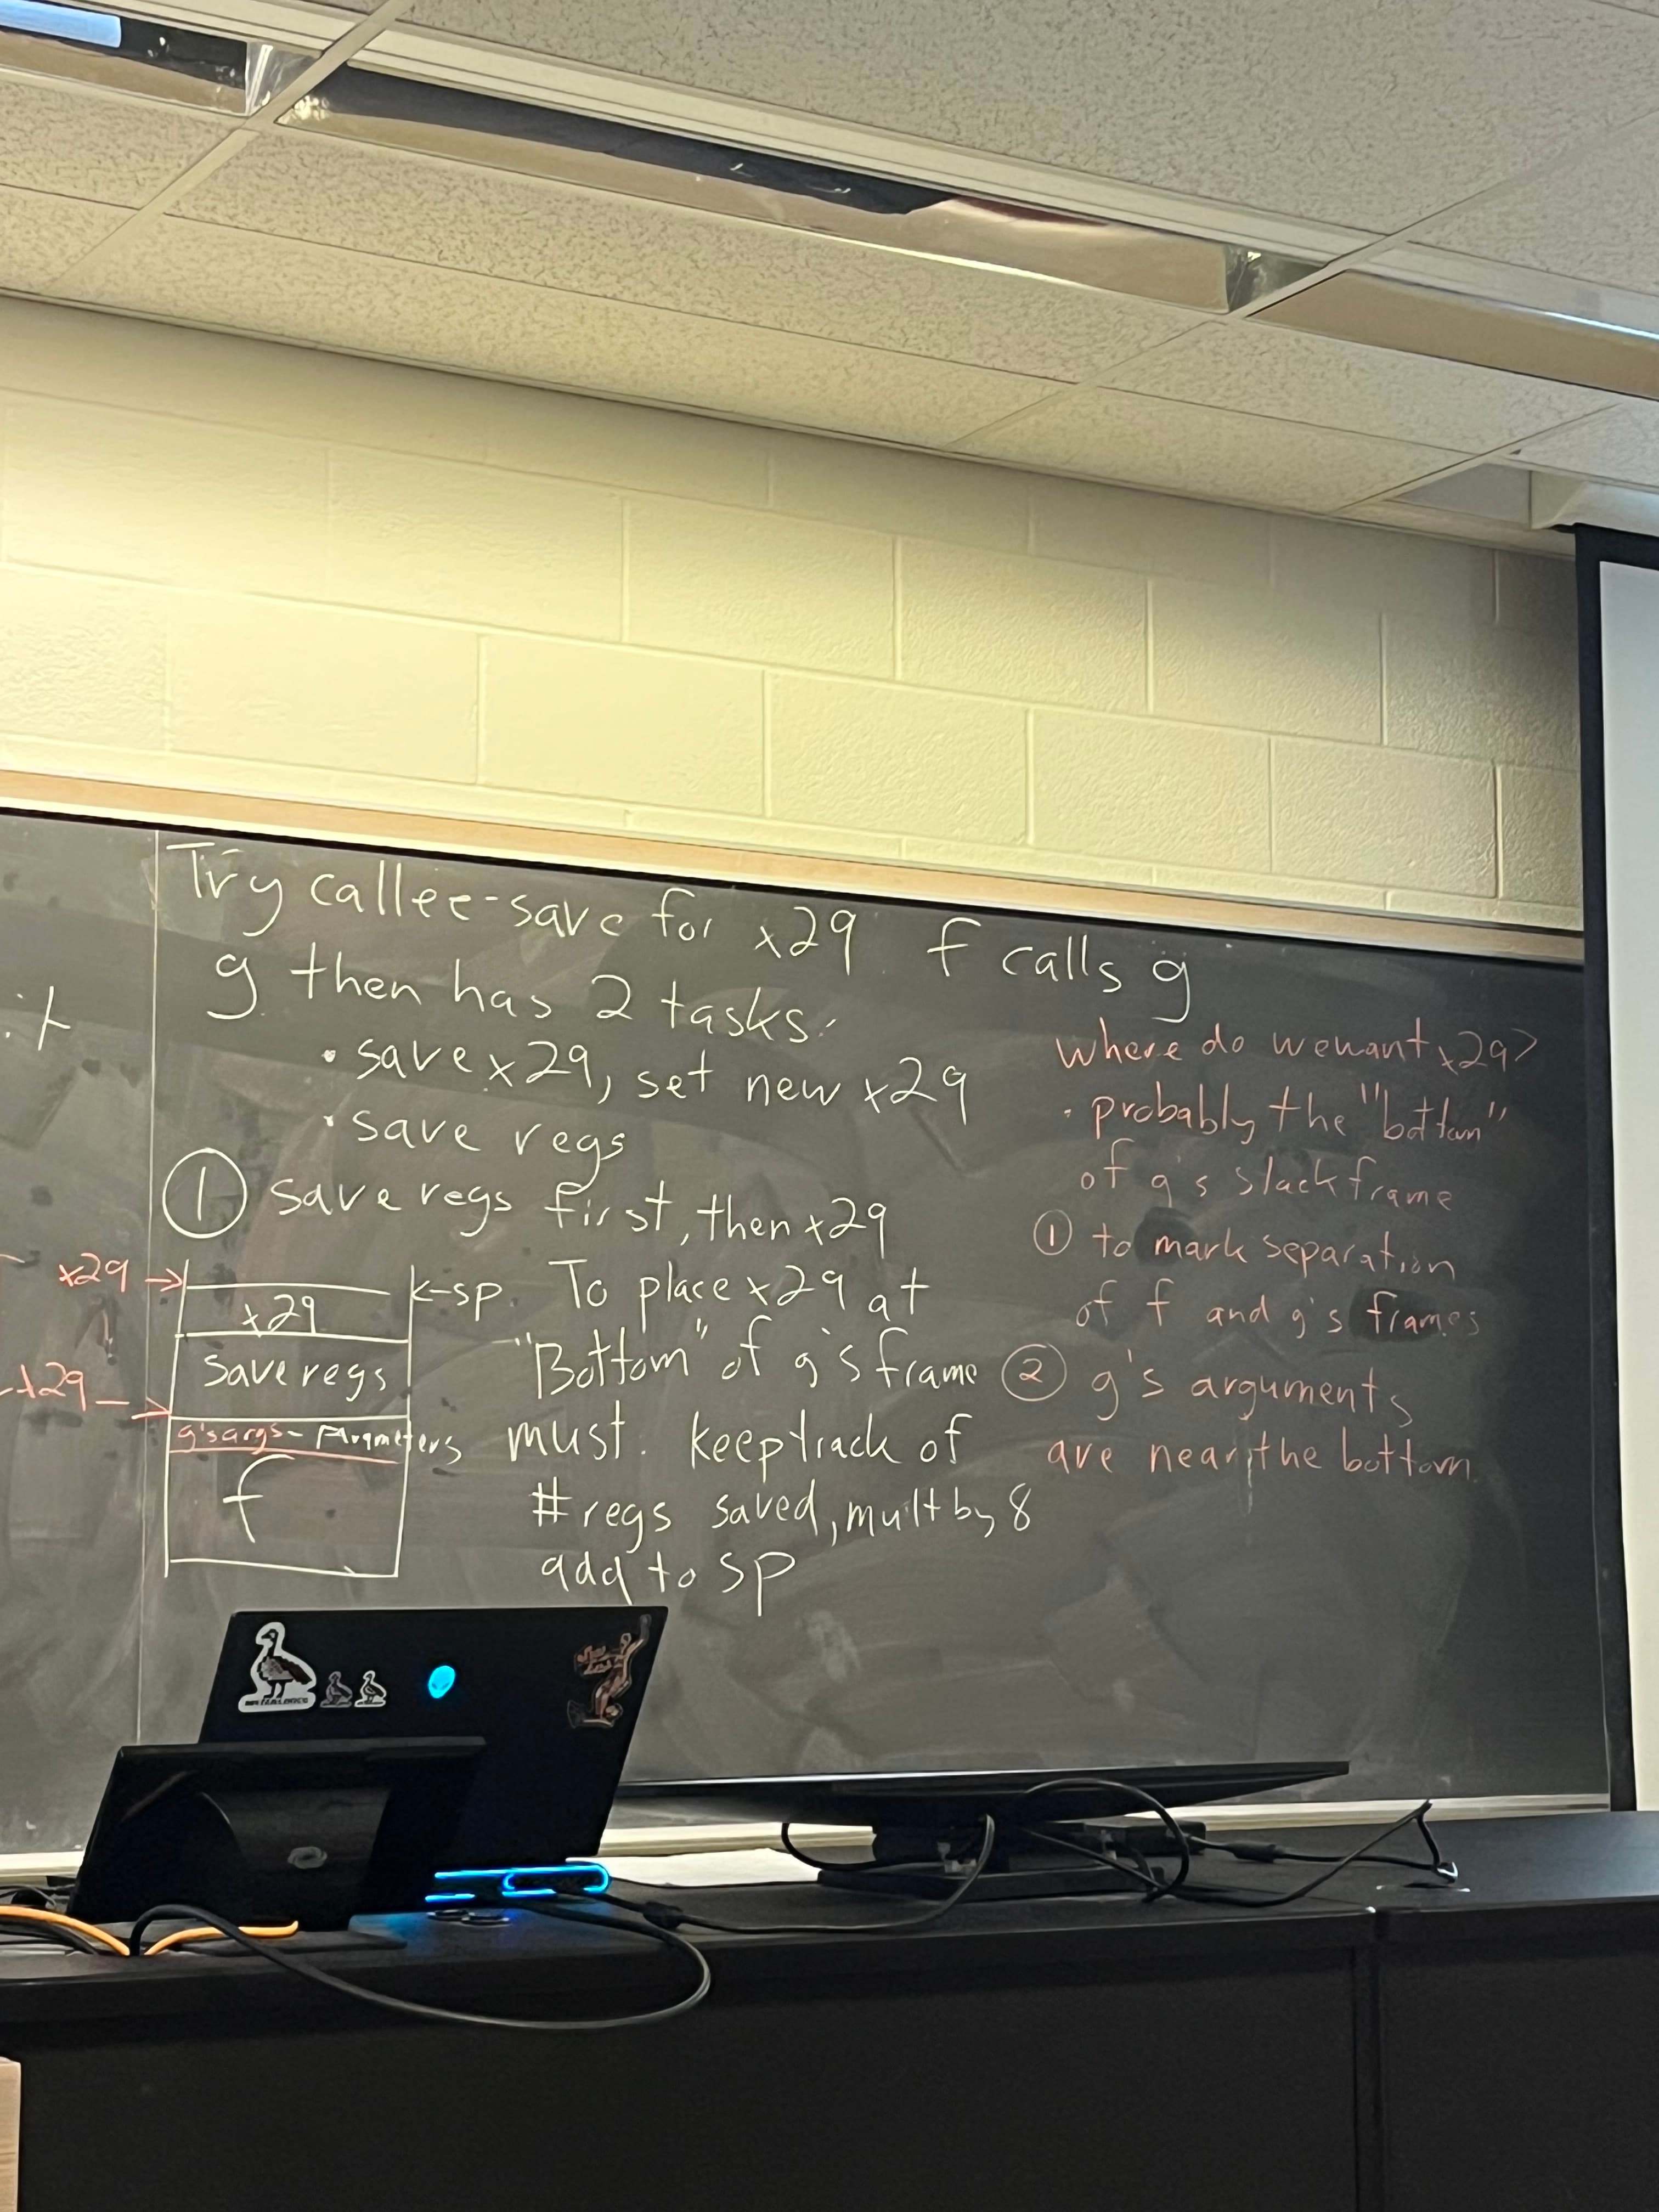 Try callee-save for x29 f calls g
g then has 2 tasks:
• save x29, set new x29
• save regs
① save regs first, then x29
x29 →
x29
←sp
save regs
x29 →
g's args - Parameters
f
To place x29 at
"Bottom" of g's frame
must. keep track of
# regs saved, mult by 8
add to sp
where do we want x29?
• probably the "bottom"
of g's stack frame
① to mark separation
of f and g's frames
② g's arguments
are near the bottom.